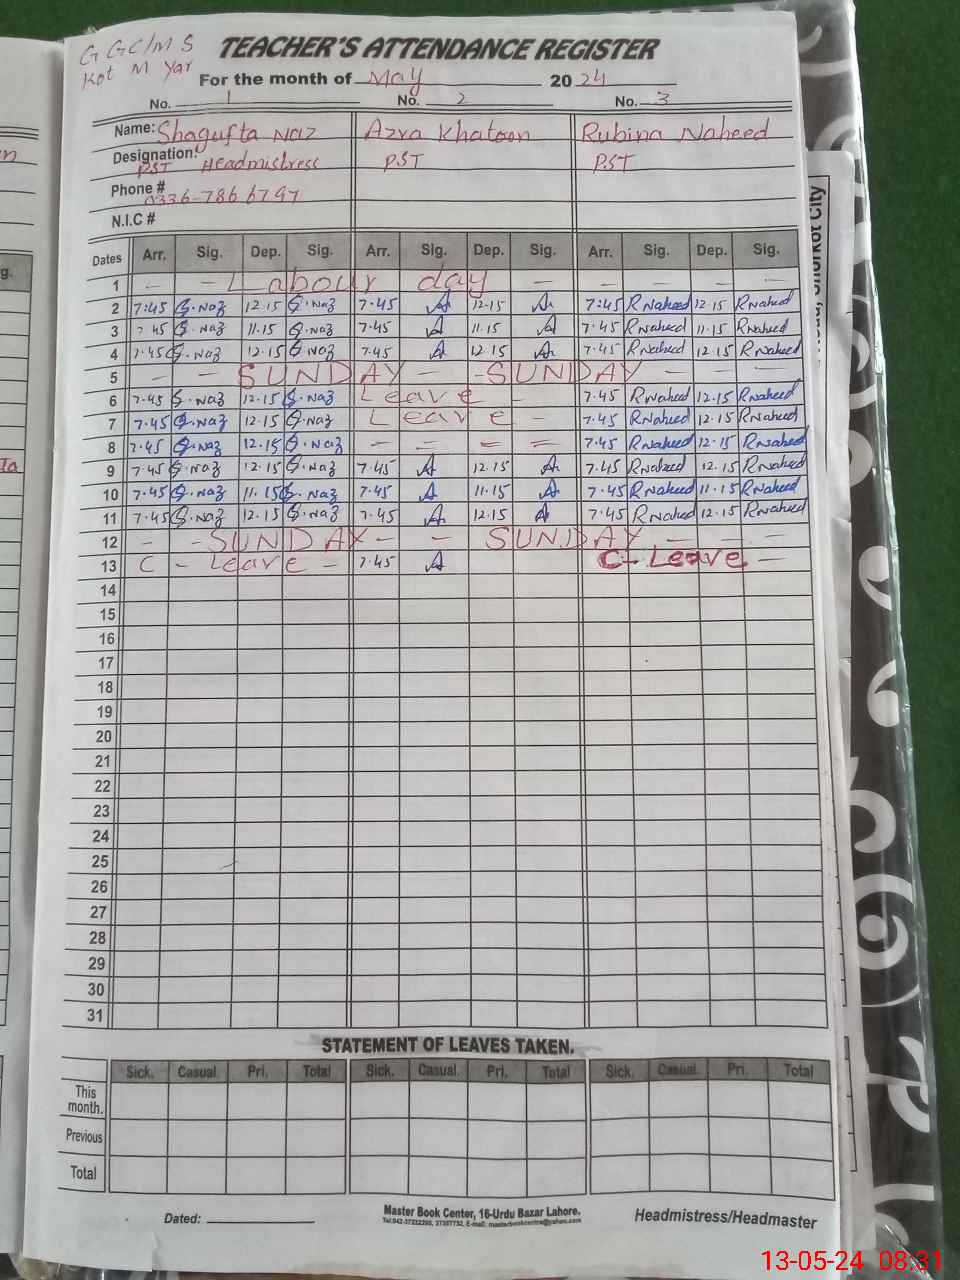 G GC/M S
Kot M Yar
TEACHER'S ATTENDANCE REGISTER
For the month of May 2024
No. 1 No. 2 No. 3
Name: Shagufta Naz Azra Khatoon Rubina Naheed
Designation: PST Headmistress PST PST
Phone # 0336-786 6797
N.I.C #
Dates Arr. Sig. Dep. Sig. Arr. Sig. Dep. Sig. Arr. Sig. Dep. Sig.
1 - - Labour day - - - - -
2 7:45 S.Naz 12.15 S.Naz 7.45 A 12.15 A 7:45 RNaheed 12.15 RNaheed
3 7.45 S.Naz 11.15 S.Naz 7.45 A 11.15 A 7.45 RNaheed 11.15 RNaheed
4 7.45 S.Naz 12.15 S.Naz 7.45 A 12.15 A 7.45 RNaheed 12.15 RNaheed
5 - - SUNDAY - - SUNDAY - - -
6 7.45 S.Naz 12.15 S.Naz Leave - 7.45 RNaheed 12.15 RNaheed
7 7.45 S.Naz 12.15 S.Naz Leave - 7.45 RNaheed 12.15 RNaheed
8 7.45 S.Naz 12.15 S.Naz - = = = 7.45 RNaheed 12.15 RNaheed
9 7.45 S.Naz 12.15 S.Naz 7.45 A 12.15 A 7.45 RNaheed 12.15 RNaheed
10 7.45 S.Naz 11.15 S.Naz 7.45 A 11.15 A 7.45 RNaheed 11.15 RNaheed
11 7.45 S.Naz 12.15 S.Naz 7.45 A 12.15 A 7.45 RNaheed 12.15 RNaheed
12 - - SUNDAY - - SUNDAY - - -
13 C - Leave - 7.45 A C - Leave -
14
15
16
17
18
19
20
21
22
23
24
25
26
27
28
29
30
31
STATEMENT OF LEAVES TAKEN.
Sick. Casual. Pri. Total Sick. Casual. Pri. Total Sick. Casual. Pri. Total
This month.
Previous
Total
Dated:
Master Book Center, 16-Urdu Bazar Lahore.
Headmistress/Headmaster
13-05-24 08:31